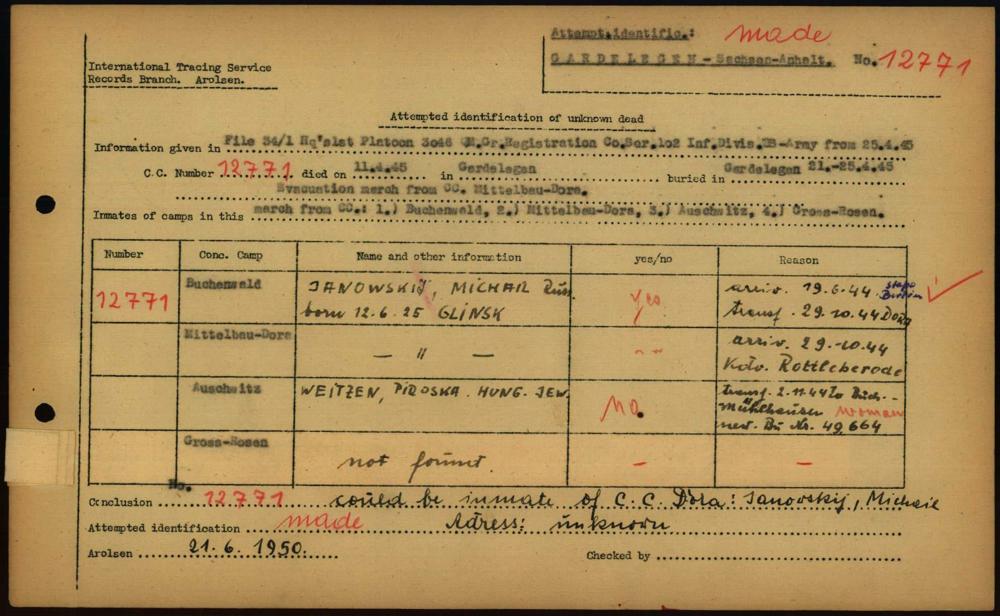 Attempt.identific.: made
GARDELEGEN - Sachsen-Anhalt. No. 12771
International Tracing Service
Records Branch. Arolsen.
Attempted identification of unknown dead
Information given in File 54/1 Hq's1st Platoon 3046 QM.Gr.Registration Co.Ser.102 Inf.Divis.US-Army from 25.4.45
C.C. Number 12771 died on 11.4.45 in Gardelegen buried in Gardelegen 21.-25.4.45
Evacuation march from CC. Mittelbau-Dora.
Inmates of camps in this march from CC.: 1.) Buchenwald, 2.) Mittelbau-Dora, 3.) Auschwitz, 4.) Gross-Rosen.
Number Conc. Camp Name and other information yes/no Reason
12771 Buchenwald JANOWSKIJ, MICHAIL Russ. born 12.6.25 GLINSK yes. arriv. 19.6.44 transf. 29.10.44 Dora
Mittelbau-Dora — " — arriv. 29.10.44 Kdo. Rottleberode
Auschwitz WEITZEN, PIROSKA. HUNG. JEW. No. transf. 2.11.44 to Buch.-Mühlhausen woman Bu Nr. 49664
Gross-Rosen not found. — —
Conclusion No. 12771 could be inmate of C.C. Dora: Janovskij, Michail
Attempted identification made Adress: unknown
Arolsen 21.6.1950. Checked by